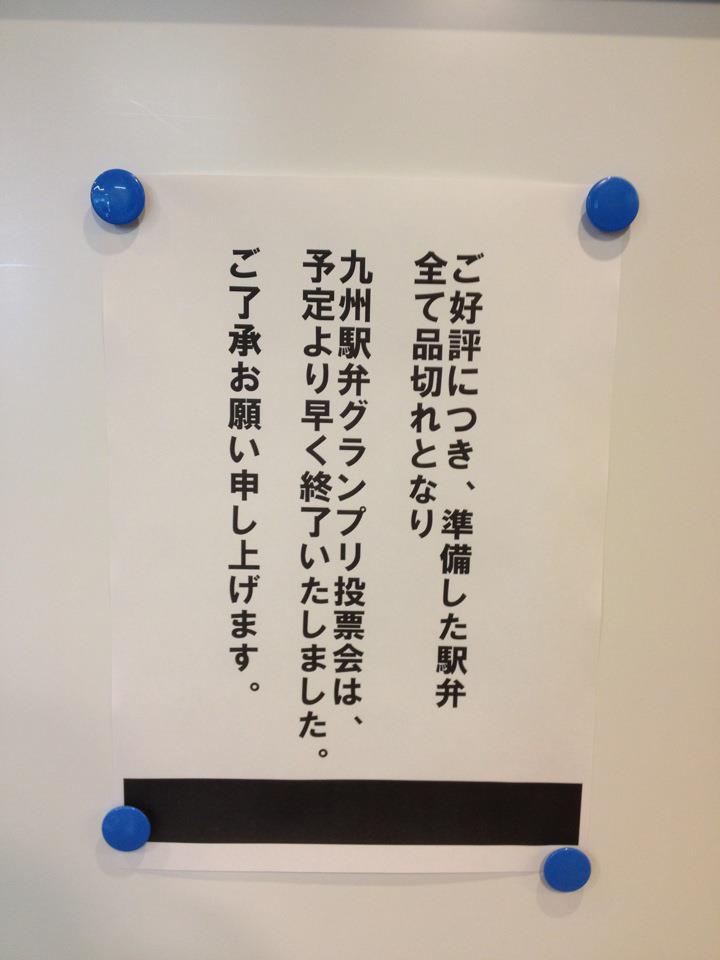 ご好評につき、準備した駅弁
全て品切れとなり
九州駅弁グランプリ投票会は、
予定より早く終了いたしました。
ご了承お願い申し上げます。